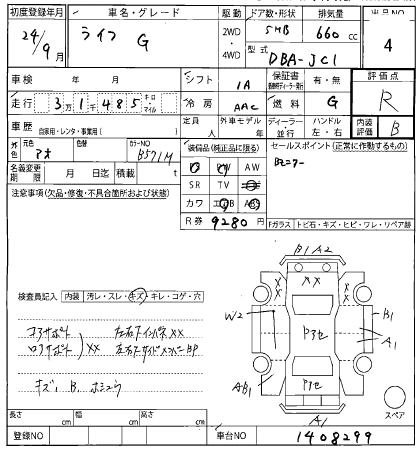 初度登録年月 車名・グレード 駆動 ドア数・形状 排気量 出品NO
24/9月 ライフ G 2WD・4WD 5HB 660 cc 4
型式 DBA-JC1
車検 年 月 シフト IA 保証書 有・無 評価点
走行 3万1千485 キロ・マイル 冷房 AAC 燃料 G R
車歴 自家用・レンタ・事業用( ) 定員 人 外車モデル 年 ディーラー・並行 ハンドル 左・右 内装評価 B
元色 アオ 色 カラーNO B571M
装備品(純正品に限る) セールスポイント(正常に作動するもの)
名義変更期限 月 日 積載 t
PS PW AW
SR TV
カワ エアB ABS
R券 9280円
注意事項(欠品・修復・不具合箇所および状態)
Fガラス トビ石・キズ・ヒビ・ワレ・リペア跡
B1 A2
XX
検査員記入 内装 汚レ・スレ・キズ・キレ・コゲ・穴
W2 P3セ B1
A1
コアサポート 左右Fインパネ XX
ロアサポート XX 左右Fサイドメンバー BP
P3セ
AB1
キズ、B、ホシュウ
スペア
A1
長さ cm 幅 cm 高さ cm
登録NO 車台NO 1408299